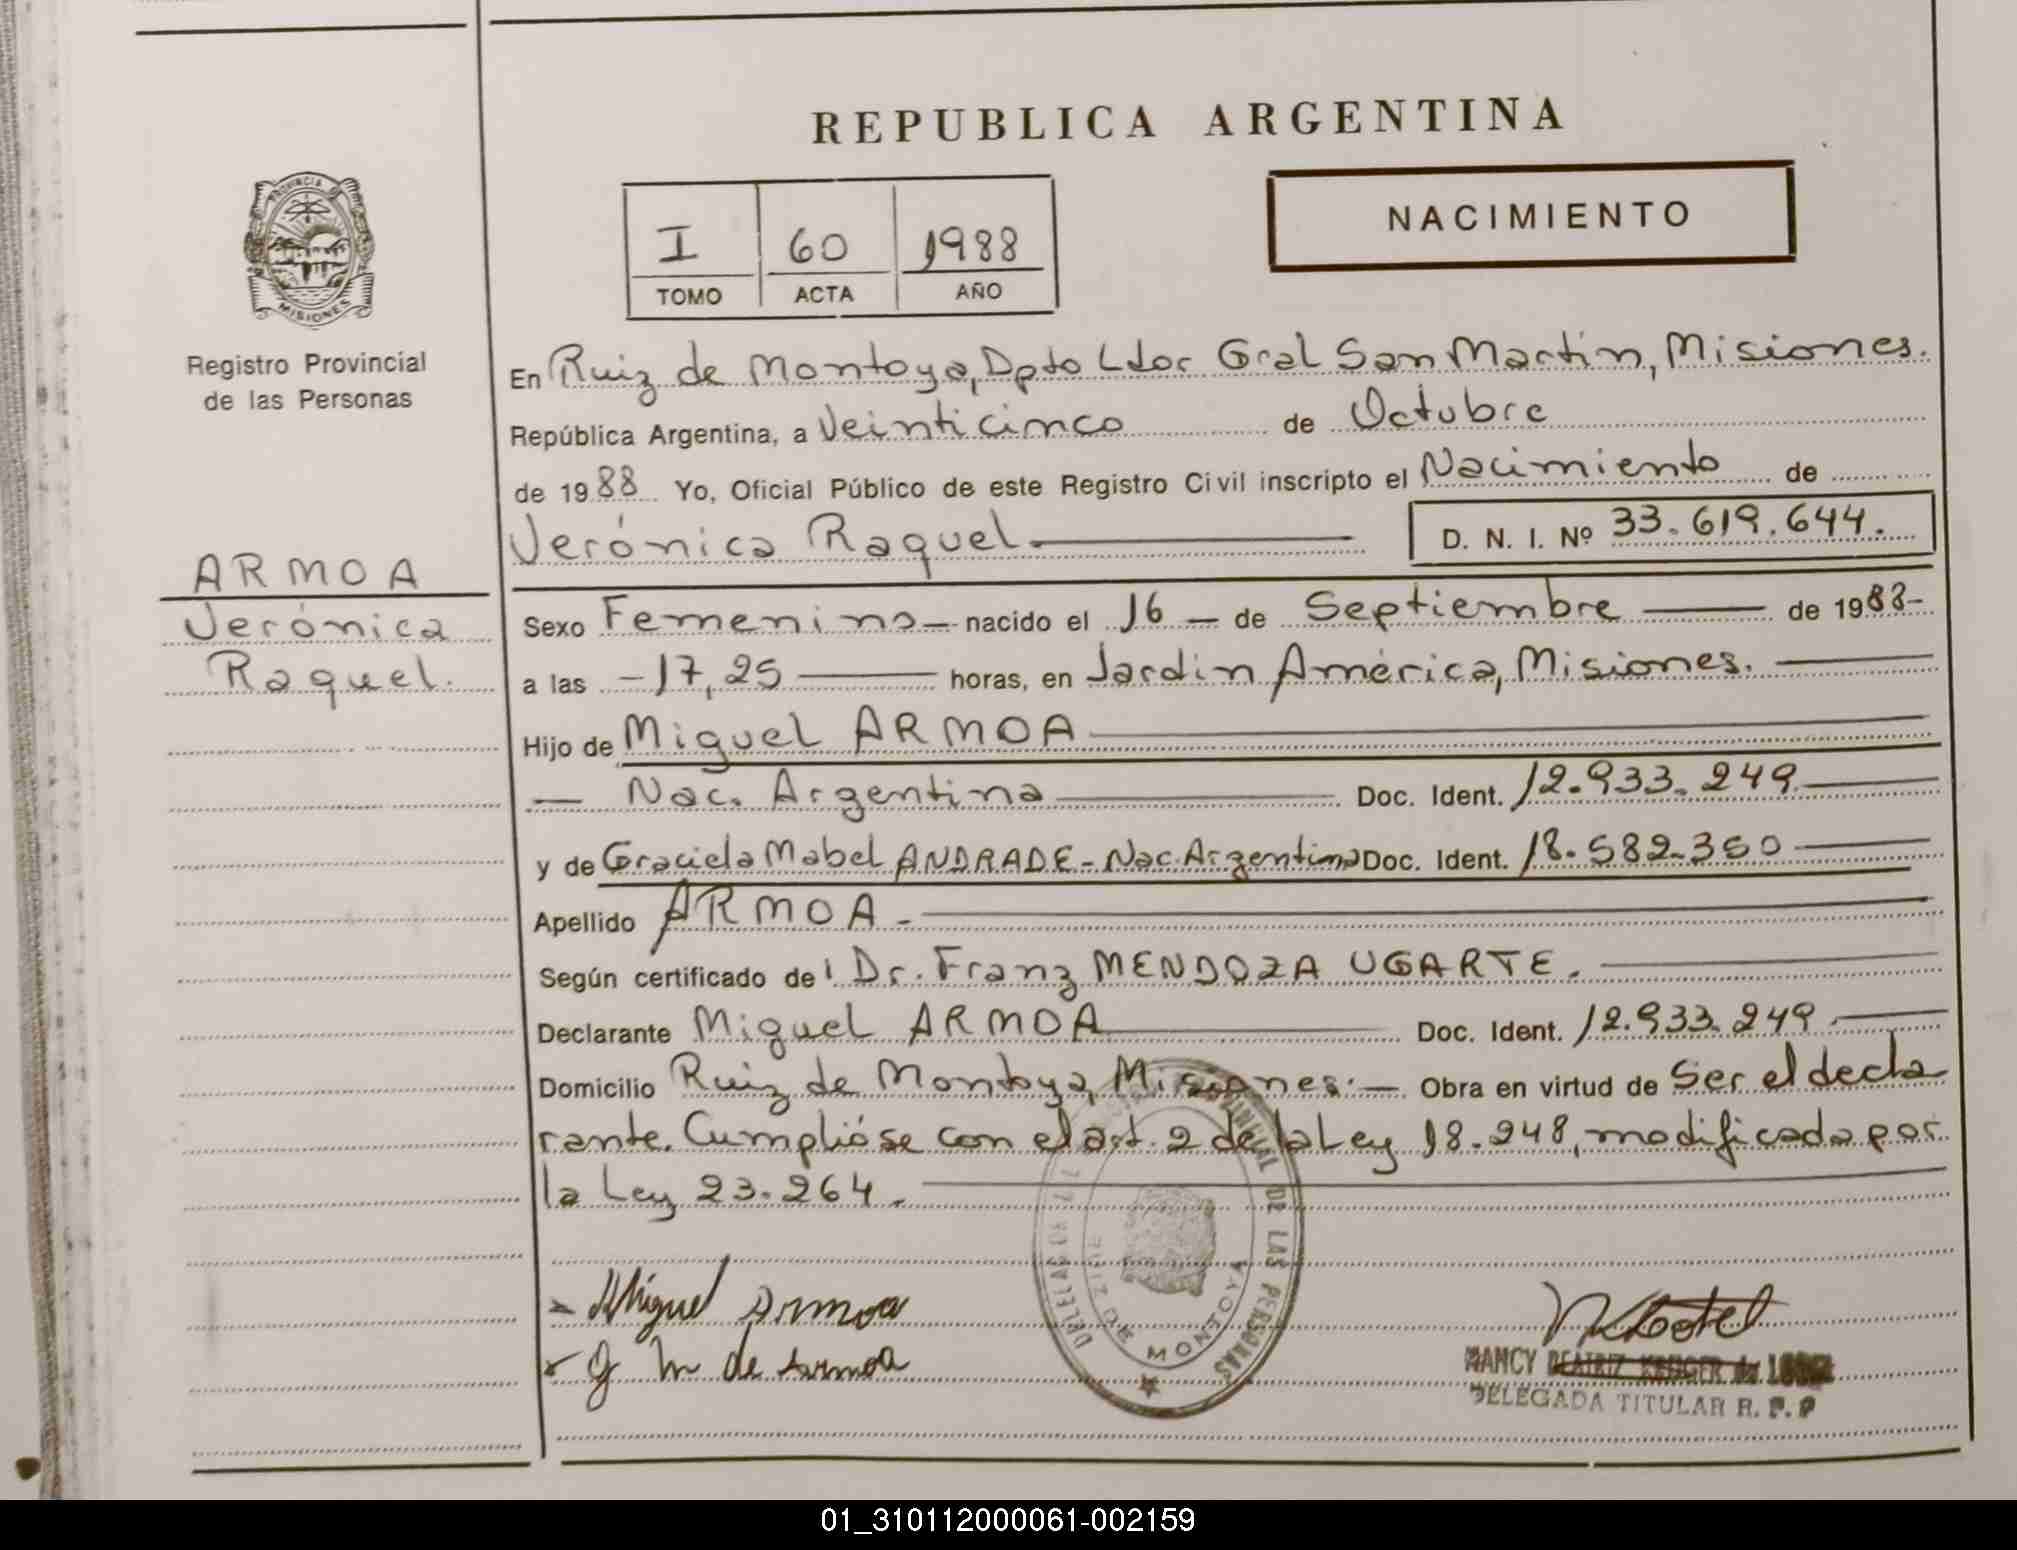 REPUBLICA ARGENTINA
PROVINCIA DE
MISIONES
Registro Provincial
de las Personas
I 60 1988
TOMO ACTA AÑO
NACIMIENTO
En Ruiz de Montoya, Dpto Ldor Gral San Martín, Misiones.
República Argentina, a Veinticinco de Octubre
de 1988 Yo, Oficial Público de este Registro Civil inscripto el Nacimiento de
Verónica Raquel D. N. I. Nº 33.619.644.
ARMOA
Verónica
Raquel.
Sexo Femenino nacido el 16 de Septiembre de 1988
a las 17,25 horas, en Jardín América, Misiones.
Hijo de Miguel ARMOA
Nac. Argentina Doc. Ident. 12.933.249
y de Graciela Mabel ANDRADE - Nac. Argentina Doc. Ident. 18.582.350
Apellido ARMOA
Según certificado de Dr. Franz MENDOZA UGARTE.
Declarante Miguel ARMOA Doc. Ident. 12.933.249
Domicilio Ruiz de Montoya, Misiones. Obra en virtud de Ser el decla
rante. Cumplióse con el art. 2 de la Ley 18.248, modificada por
la Ley 23.264.
DE LAS PERSONAS
RUIZ DE MONTOYA
Miguel Armoa
G M de Armoa
NANCY BEATRIZ KRUGER de
DELEGADA TITULAR R. P. P
01_310112000061-002159